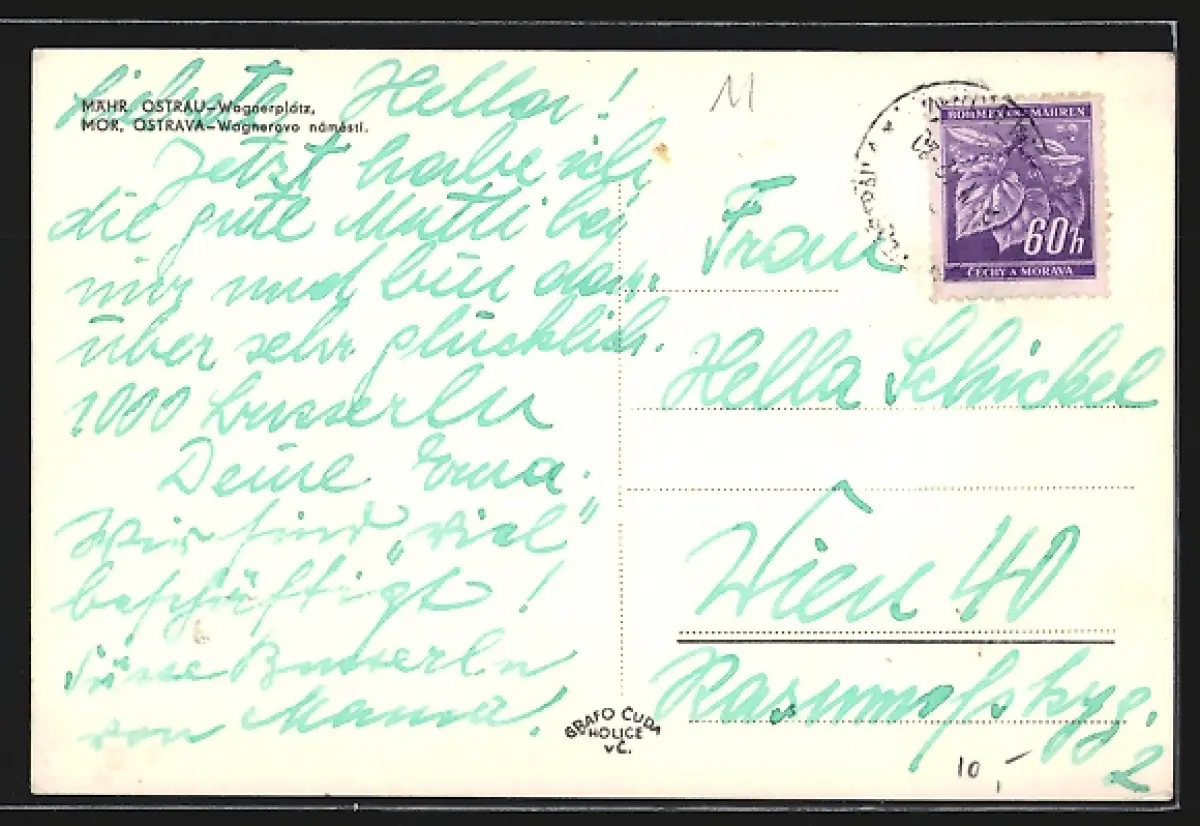 MÄHR. OSTRAU–Wagnerplatz,
MOR. OSTRAVA–Wagnerovo náměstí.
Liebste Hella!
Jetzt habe ich
die gute Mutti bei
mir und bin dar-
über sehr glücklich.
1000 Busserln
Deine Erna.
Wir sind „viel“
beschäftigt!
Süsse Busserln
von Mama!
GRAFO ČUDA
HOLICE
VČ.
M
BÖHMEN U. MÄHREN
60h
ČECHY A MORAVA
Frau
Hella Schickel
Wien 40
Rasumofskyg.
2
10,-